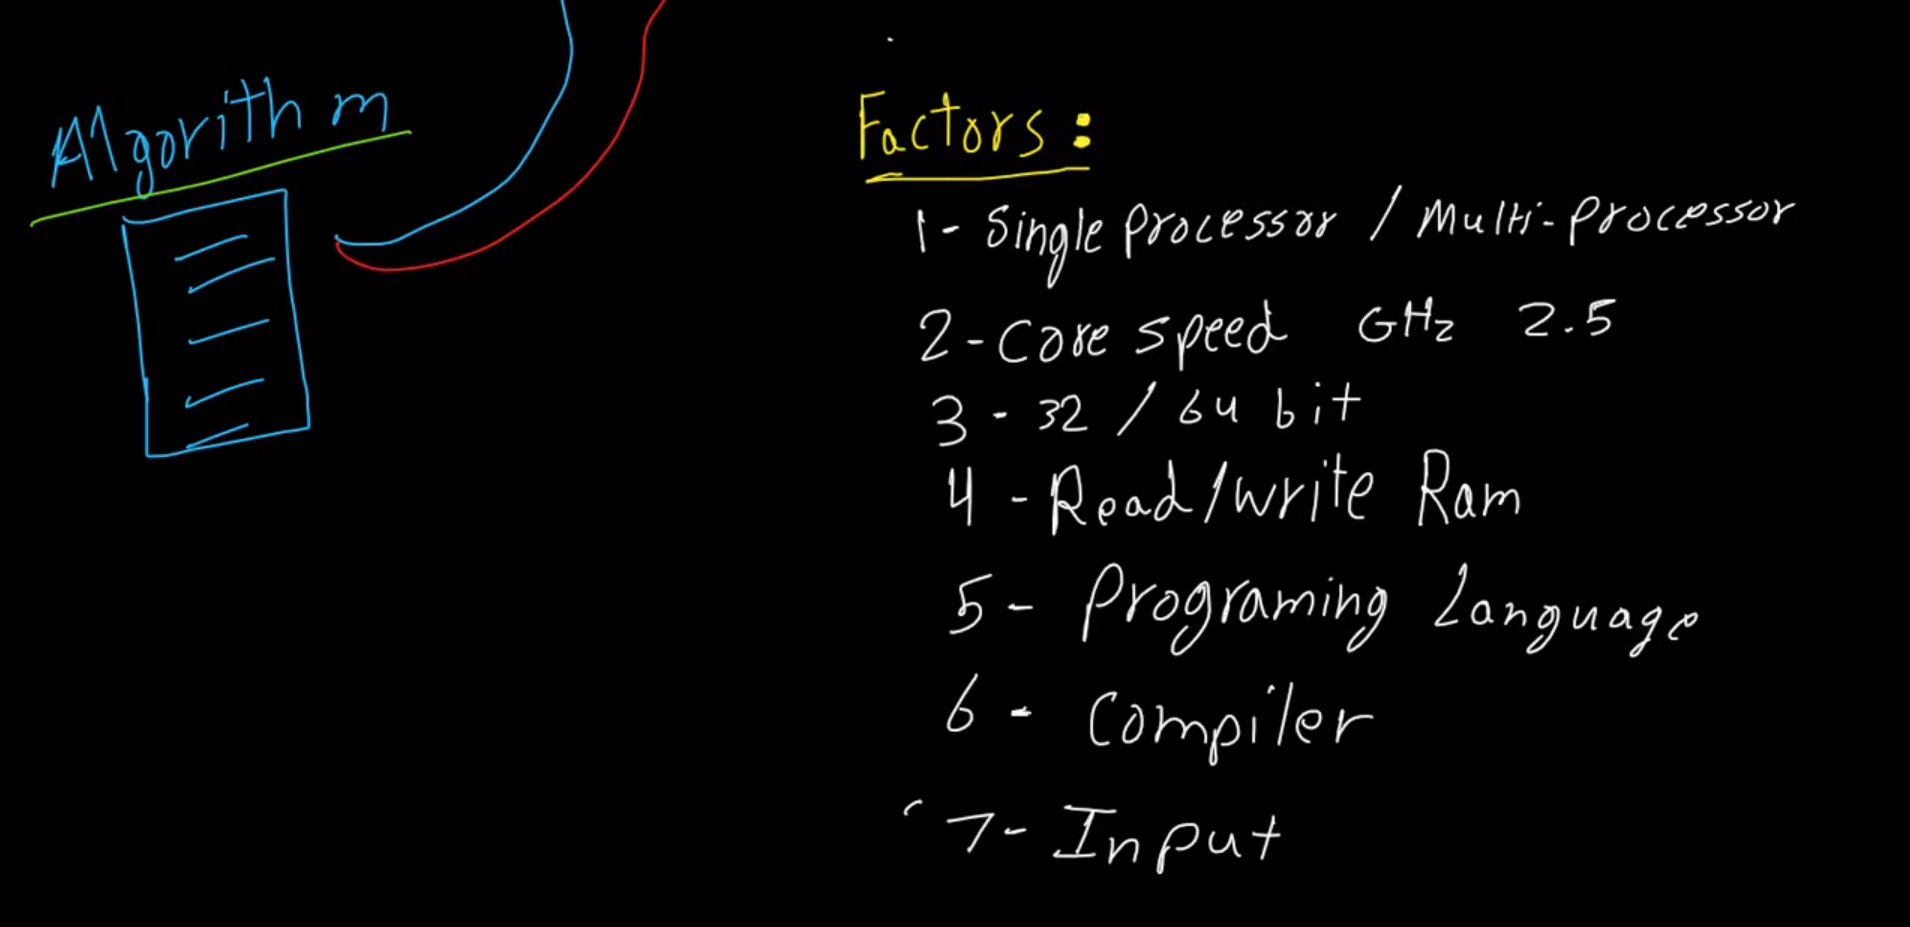 Algorithm
Factors:
1- Single processor / Multi-processor
2- Core speed GHz 2.5
3- 32 / 64 bit
4- Read/write Ram
5- Programing Language
6- Compiler
7- Input